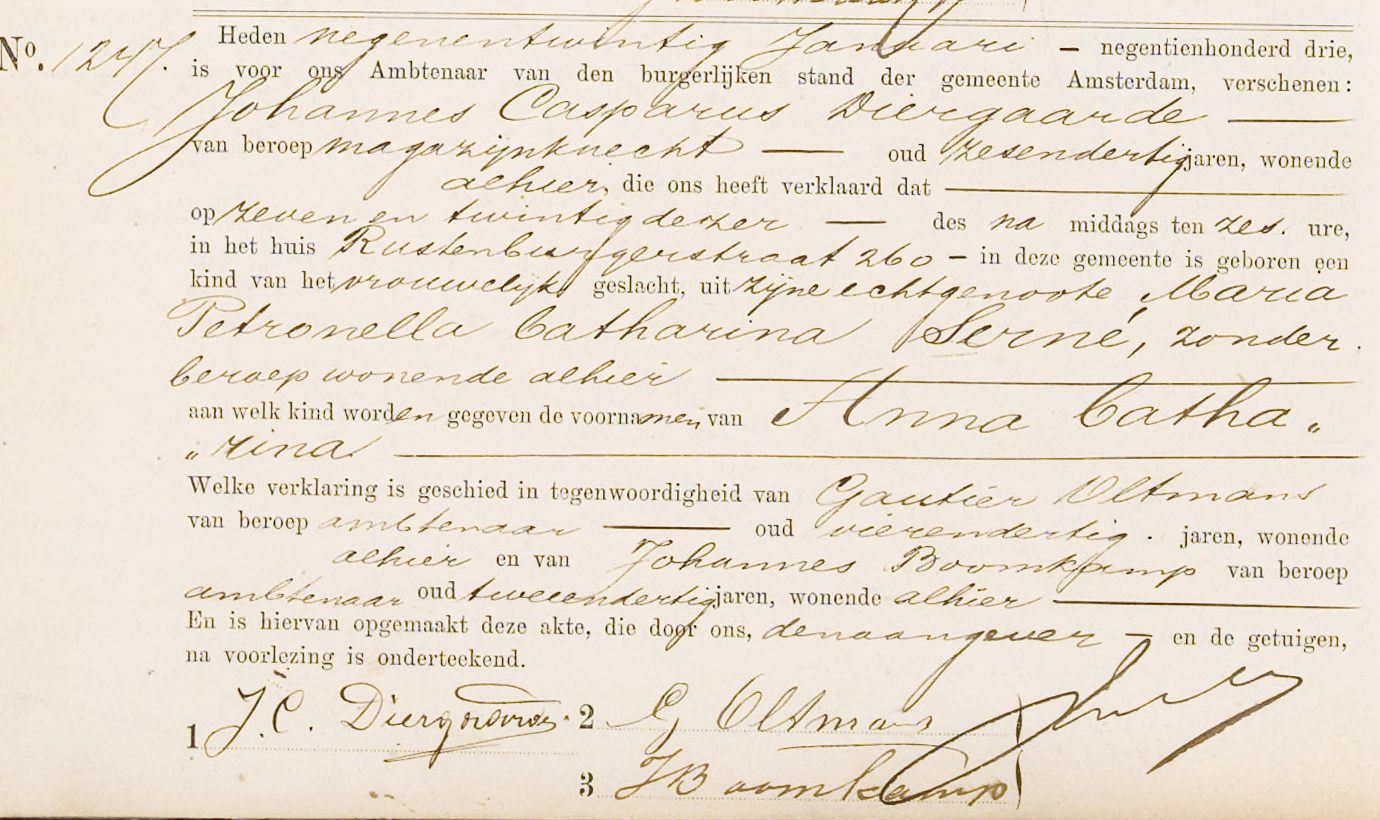 No. 1247. Heden negenentwintig Januari — negentienhonderd drie,
is voor ons Ambtenaar van den burgerlijken stand der gemeente Amsterdam, verschenen:
Johannes Casparus Diergaarde —
van beroep magazijnknecht — oud zesendertig jaren, wonende
alhier, die ons heeft verklaard dat —
op zeven en twintig dezer — des na middags ten zes. ure,
in het huis Rustenburgerstraat 260 – in deze gemeente is geboren een
kind van het vrouwelijk geslacht, uit zijne echtgenoote Maria
Petronella Catharina Serné, zonder
beroep wonende alhier —
aan welk kind worden gegeven de voornamen van Anna Catha„
„rina. —
Welke verklaring is geschied in tegenwoordigheid van Gautier Oltmans
van beroep ambtenaar — oud vierendertig. jaren, wonende
alhier en van Johannes Boomkamp van beroep
ambtenaar oud tweeendertig jaren, wonende alhier —
En is hiervan opgemaakt deze akte, die door ons, den aangever — en de getuigen,
na voorlezing is onderteekend.
1 J. C. Diergaarde. 2 G Oltmans
3 J Boomkamp